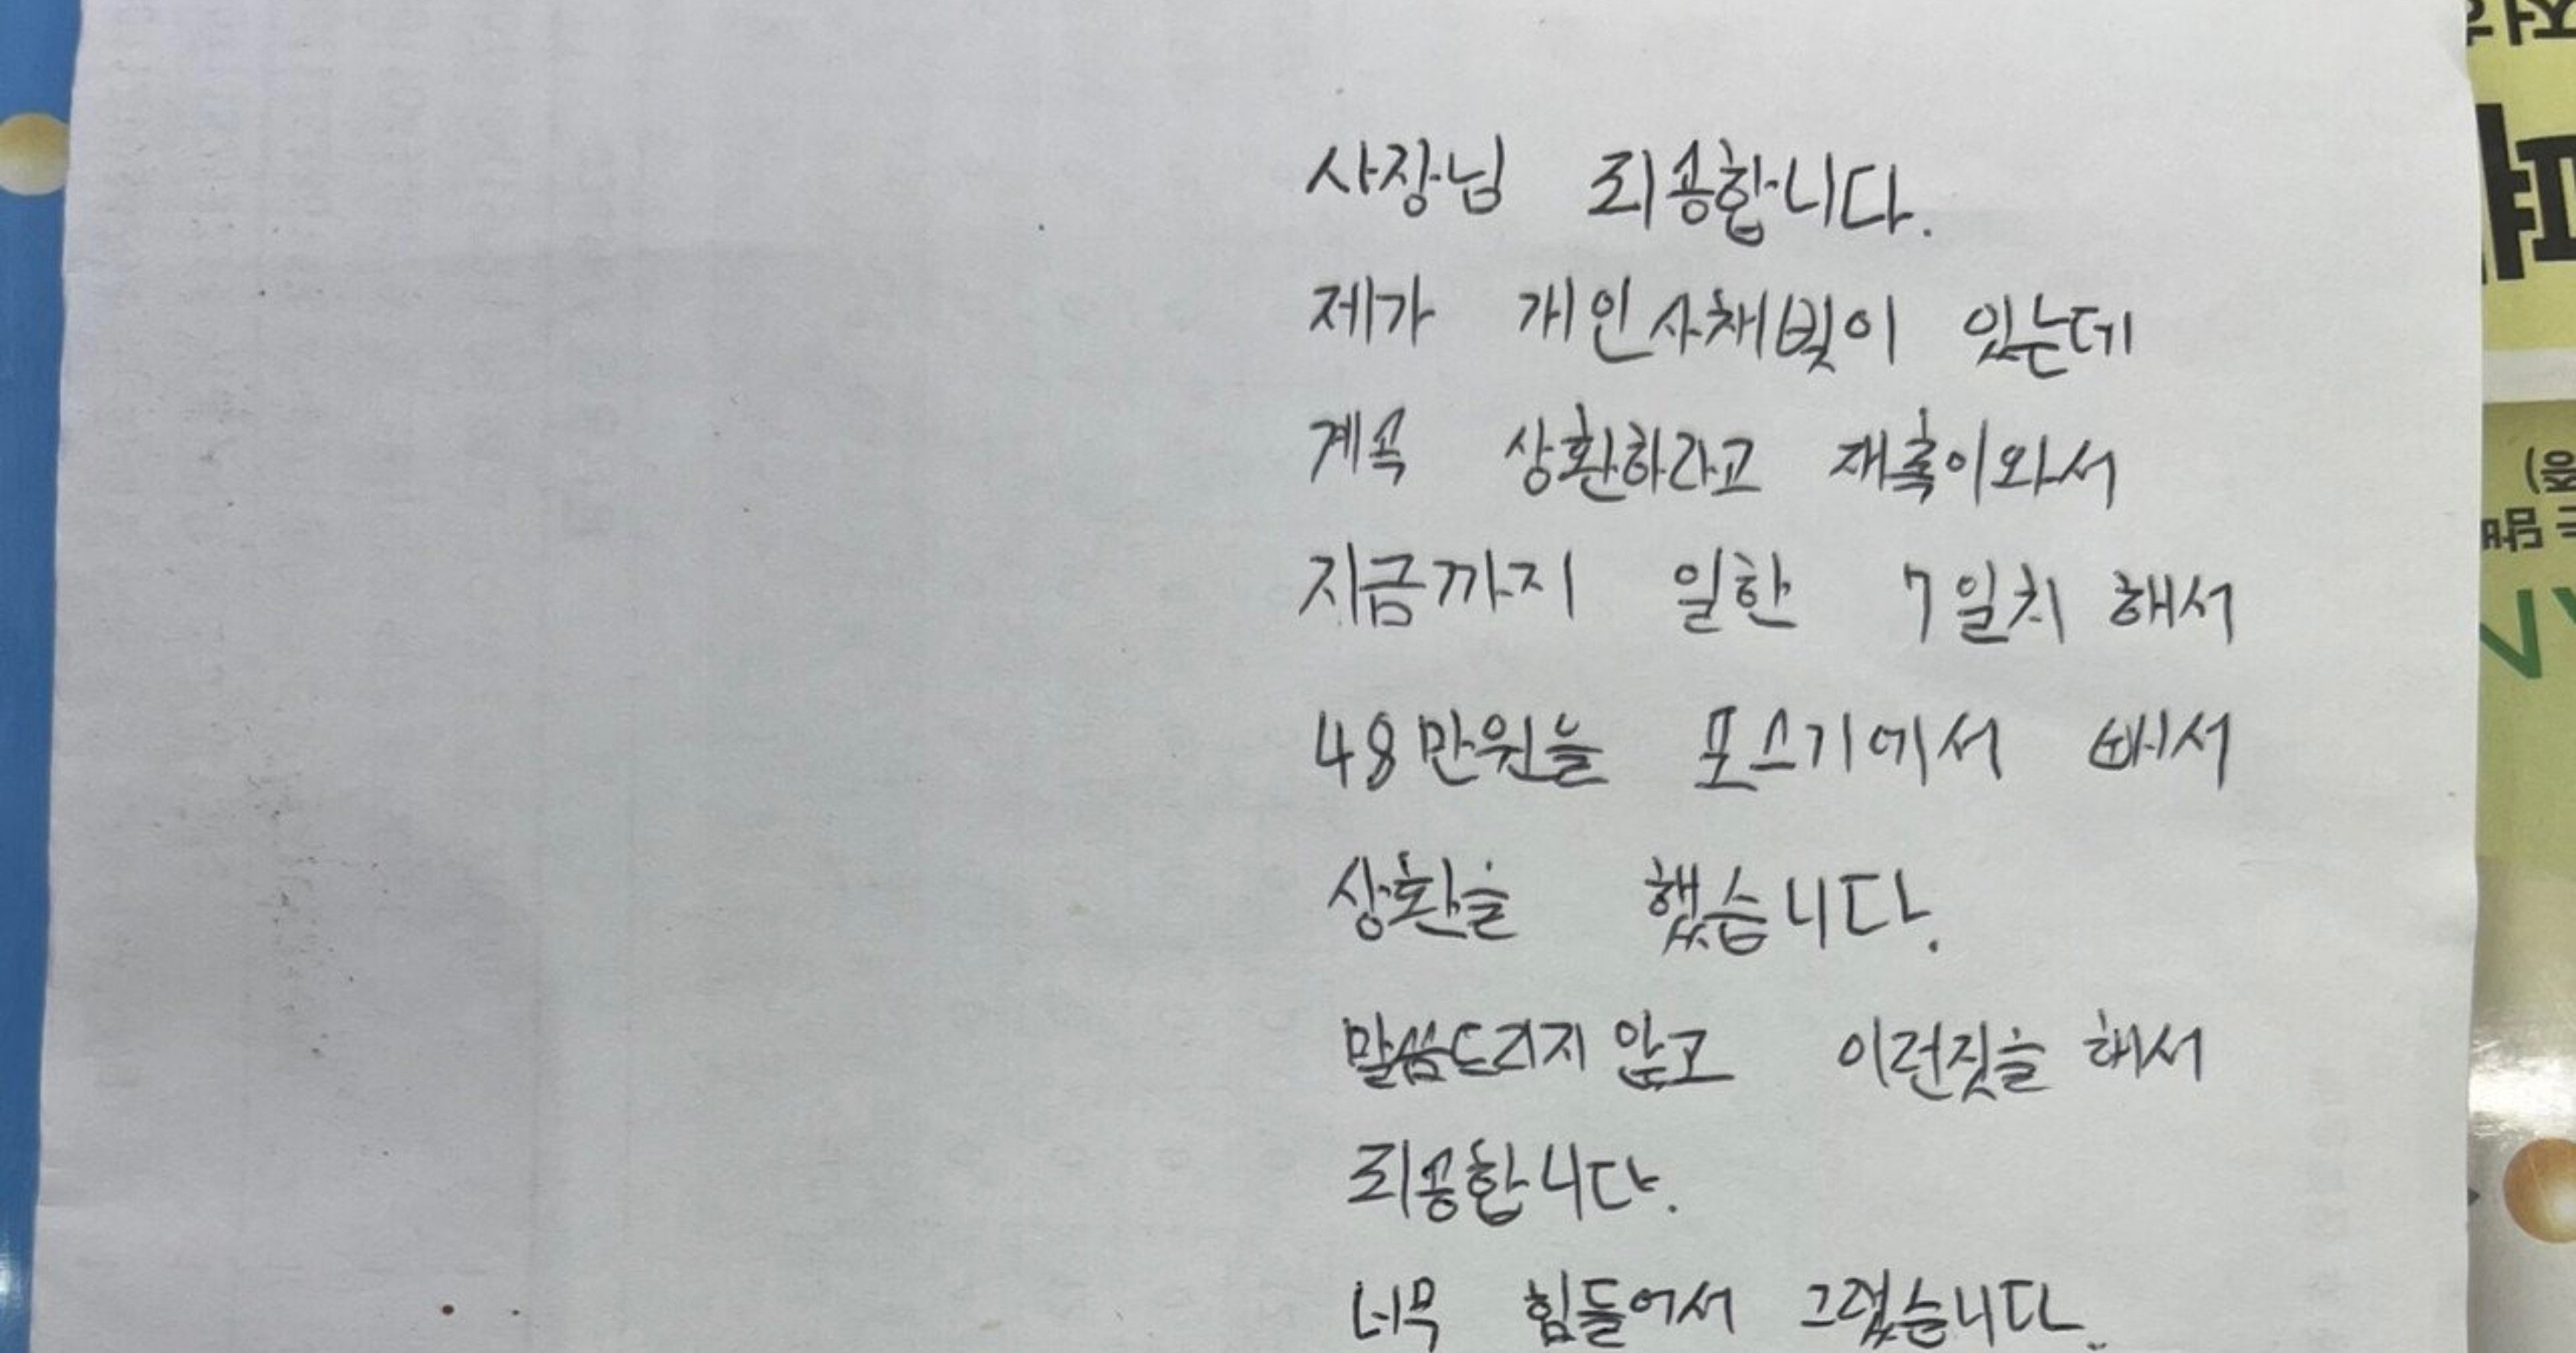 사장님 죄송합니다.
제가 개인사채빚이 있는데
계속 상환하라고 재촉이와서
지금까지 일한 7일치 해서
48만원을 포스기에서 빼서
상환을 했습니다.
말씀드리지 않고 이런짓을 해서
죄송합니다.
너무 힘들어서 그랬습니다.